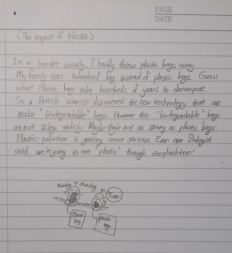 PAGE
DATE
(The impact of plastic)
I'm a hander worry. I hardly throw plastic bags away
My family uses instead of plastic bags. Guess
what! Plastic bags take hundreds of years to decompose.
So a British science discovered the new technology that can
make "biodegradable" bags. However the "biodegradable" bags
are not widely. Maybe not so strong as plastic bags.
Plastic pollution is getting more serious. Even one Biologist
said we're going to eat 'plastic' through zooplankton!
Monday
Monday
Plastic
bag
Plastic
bag